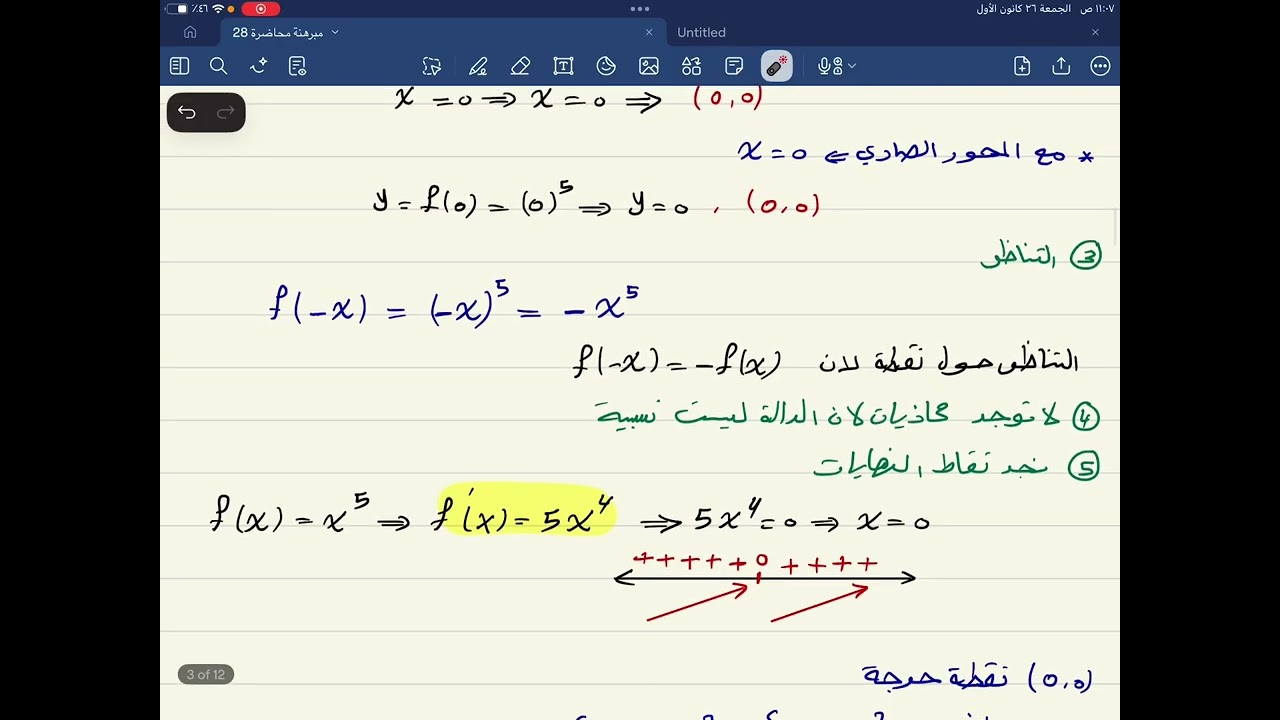 ١١:٠٧ ص الجمعة ٢٦ كانون الأول
٤٦٪
مبرهنة محاضرة 28
Untitled
x = 0 ⇒ x = 0 ⇒ (0,0)
* مع المحور الصادي ⇐ x = 0
y = f(0) = (0)^5 ⇒ y = 0 , (0,0)
③ التناظر
f(-x) = (-x)^5 = -x^5
التناظر حول نقطة لان f(-x) = -f(x)
④ لا توجد محاذيات لان الدالة ليست نسبية
⑤ نجد نقاط النهايات
f(x) = x^5 ⇒ f'(x) = 5x^4 ⇒ 5x^4 = 0 ⇒ x = 0
+++++ 0 ++++
(0,0) نقطة حرجة
3 of 12